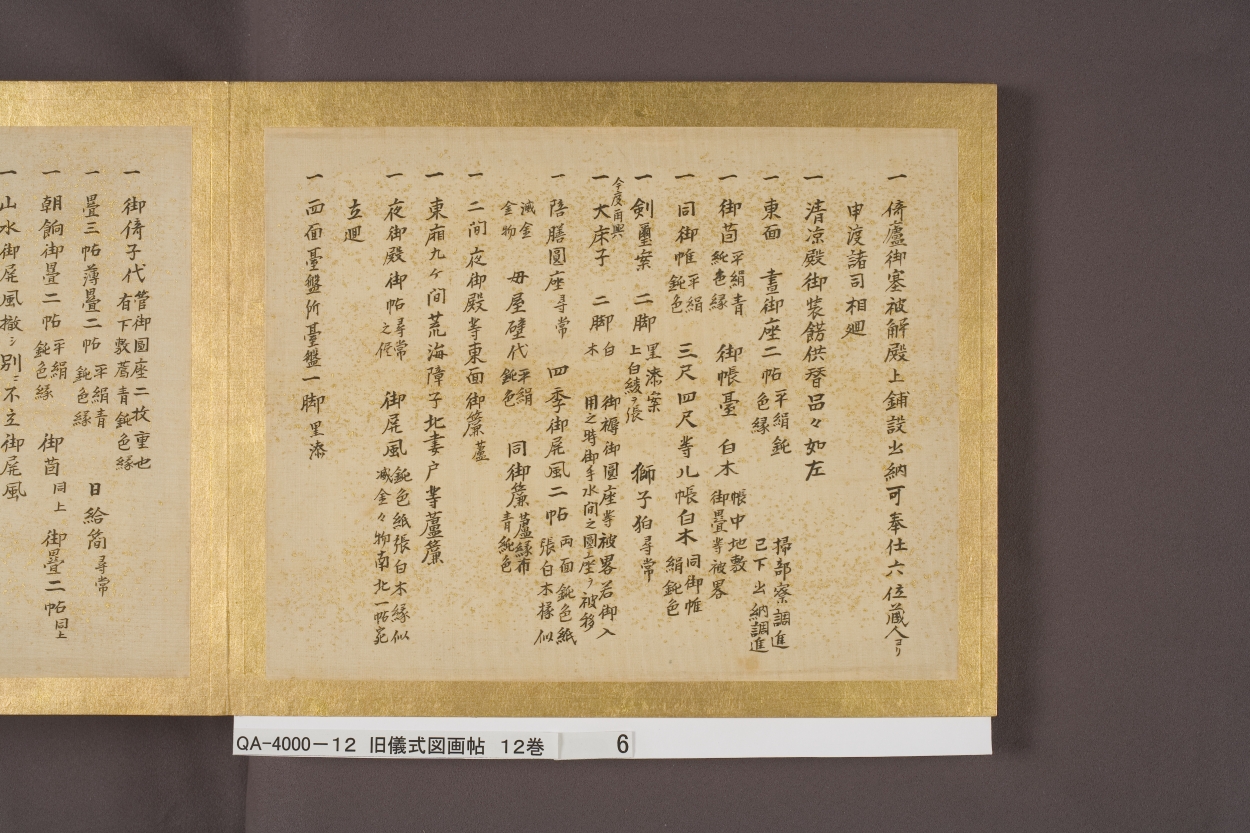 一 倚廬御塞被解殿上鋪設出納可奉仕六位蔵人ヨリ
申渡諸司相廻
一 清凉殿御装餝供替品々如左
一 東面 晝御座二帖 平絹鈍色縁 掃部寮調進
己下出納調進
一 御茵 平絹青鈍色縁 御帳臺 白木 帳中地敷
御畳等被畧
一 同御帷 平絹鈍色 三尺四尺等几帳白木 同御帷
絹鈍色
一 剣璽案 二脚 黒漆案
上白綾ヲ張 獅子狛 尋常
今度再興
一 大床子 二脚 白木 御褥御圓座等被畧若御入
用之時御手水間之圓座ヲ被移
一 陪膳圓座 尋常 四季御屏風二帖 両面鈍色紙
張白木椽似
滅金
金物 母屋壁代 平絹
鈍色 同御簾 蘆縁布
青鈍色
一 二間夜御殿等東面御簾 蘆
一 東廂九ケ間荒海障子北妻戸等蘆簾
一 夜御殿御帖 尋常
之侭 御屏風 鈍色紙張白木縁似
滅金々物南北一帖宛
立廻
一 西面臺盤所臺盤一脚 黒漆
一 御倚子代 管御圓座二枚重也
有下敷薦青鈍色縁
一 畳三帖薄畳二帖 平絹青
鈍色縁 日給簡 尋常
一 朝餉御畳二帖 平絹
鈍色縁 御茵 同上 御畳二帖 同上
一 山水御屏風撤シ別ニ不立御屏風
QA-4000-12 旧儀式図画帖 12巻 6